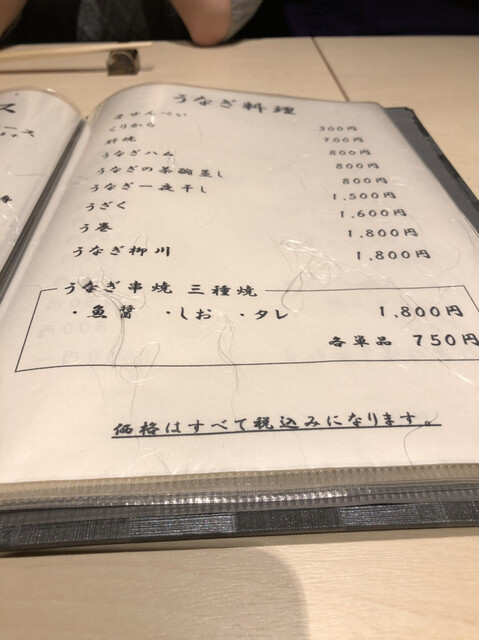 うなぎ料理
骨せんべい 300円
くりから 700円
肝焼 800円
うなぎハム 800円
うなぎの茶碗蒸し 800円
うなぎ一夜干し 1,500円
うざく 1,600円
う巻 1,800円
うなぎ柳川 1,800円
うなぎ串焼 三種焼
・魚醤 ・しお ・タレ 1,800円
各単品 750円
価格はすべて税込みになります。